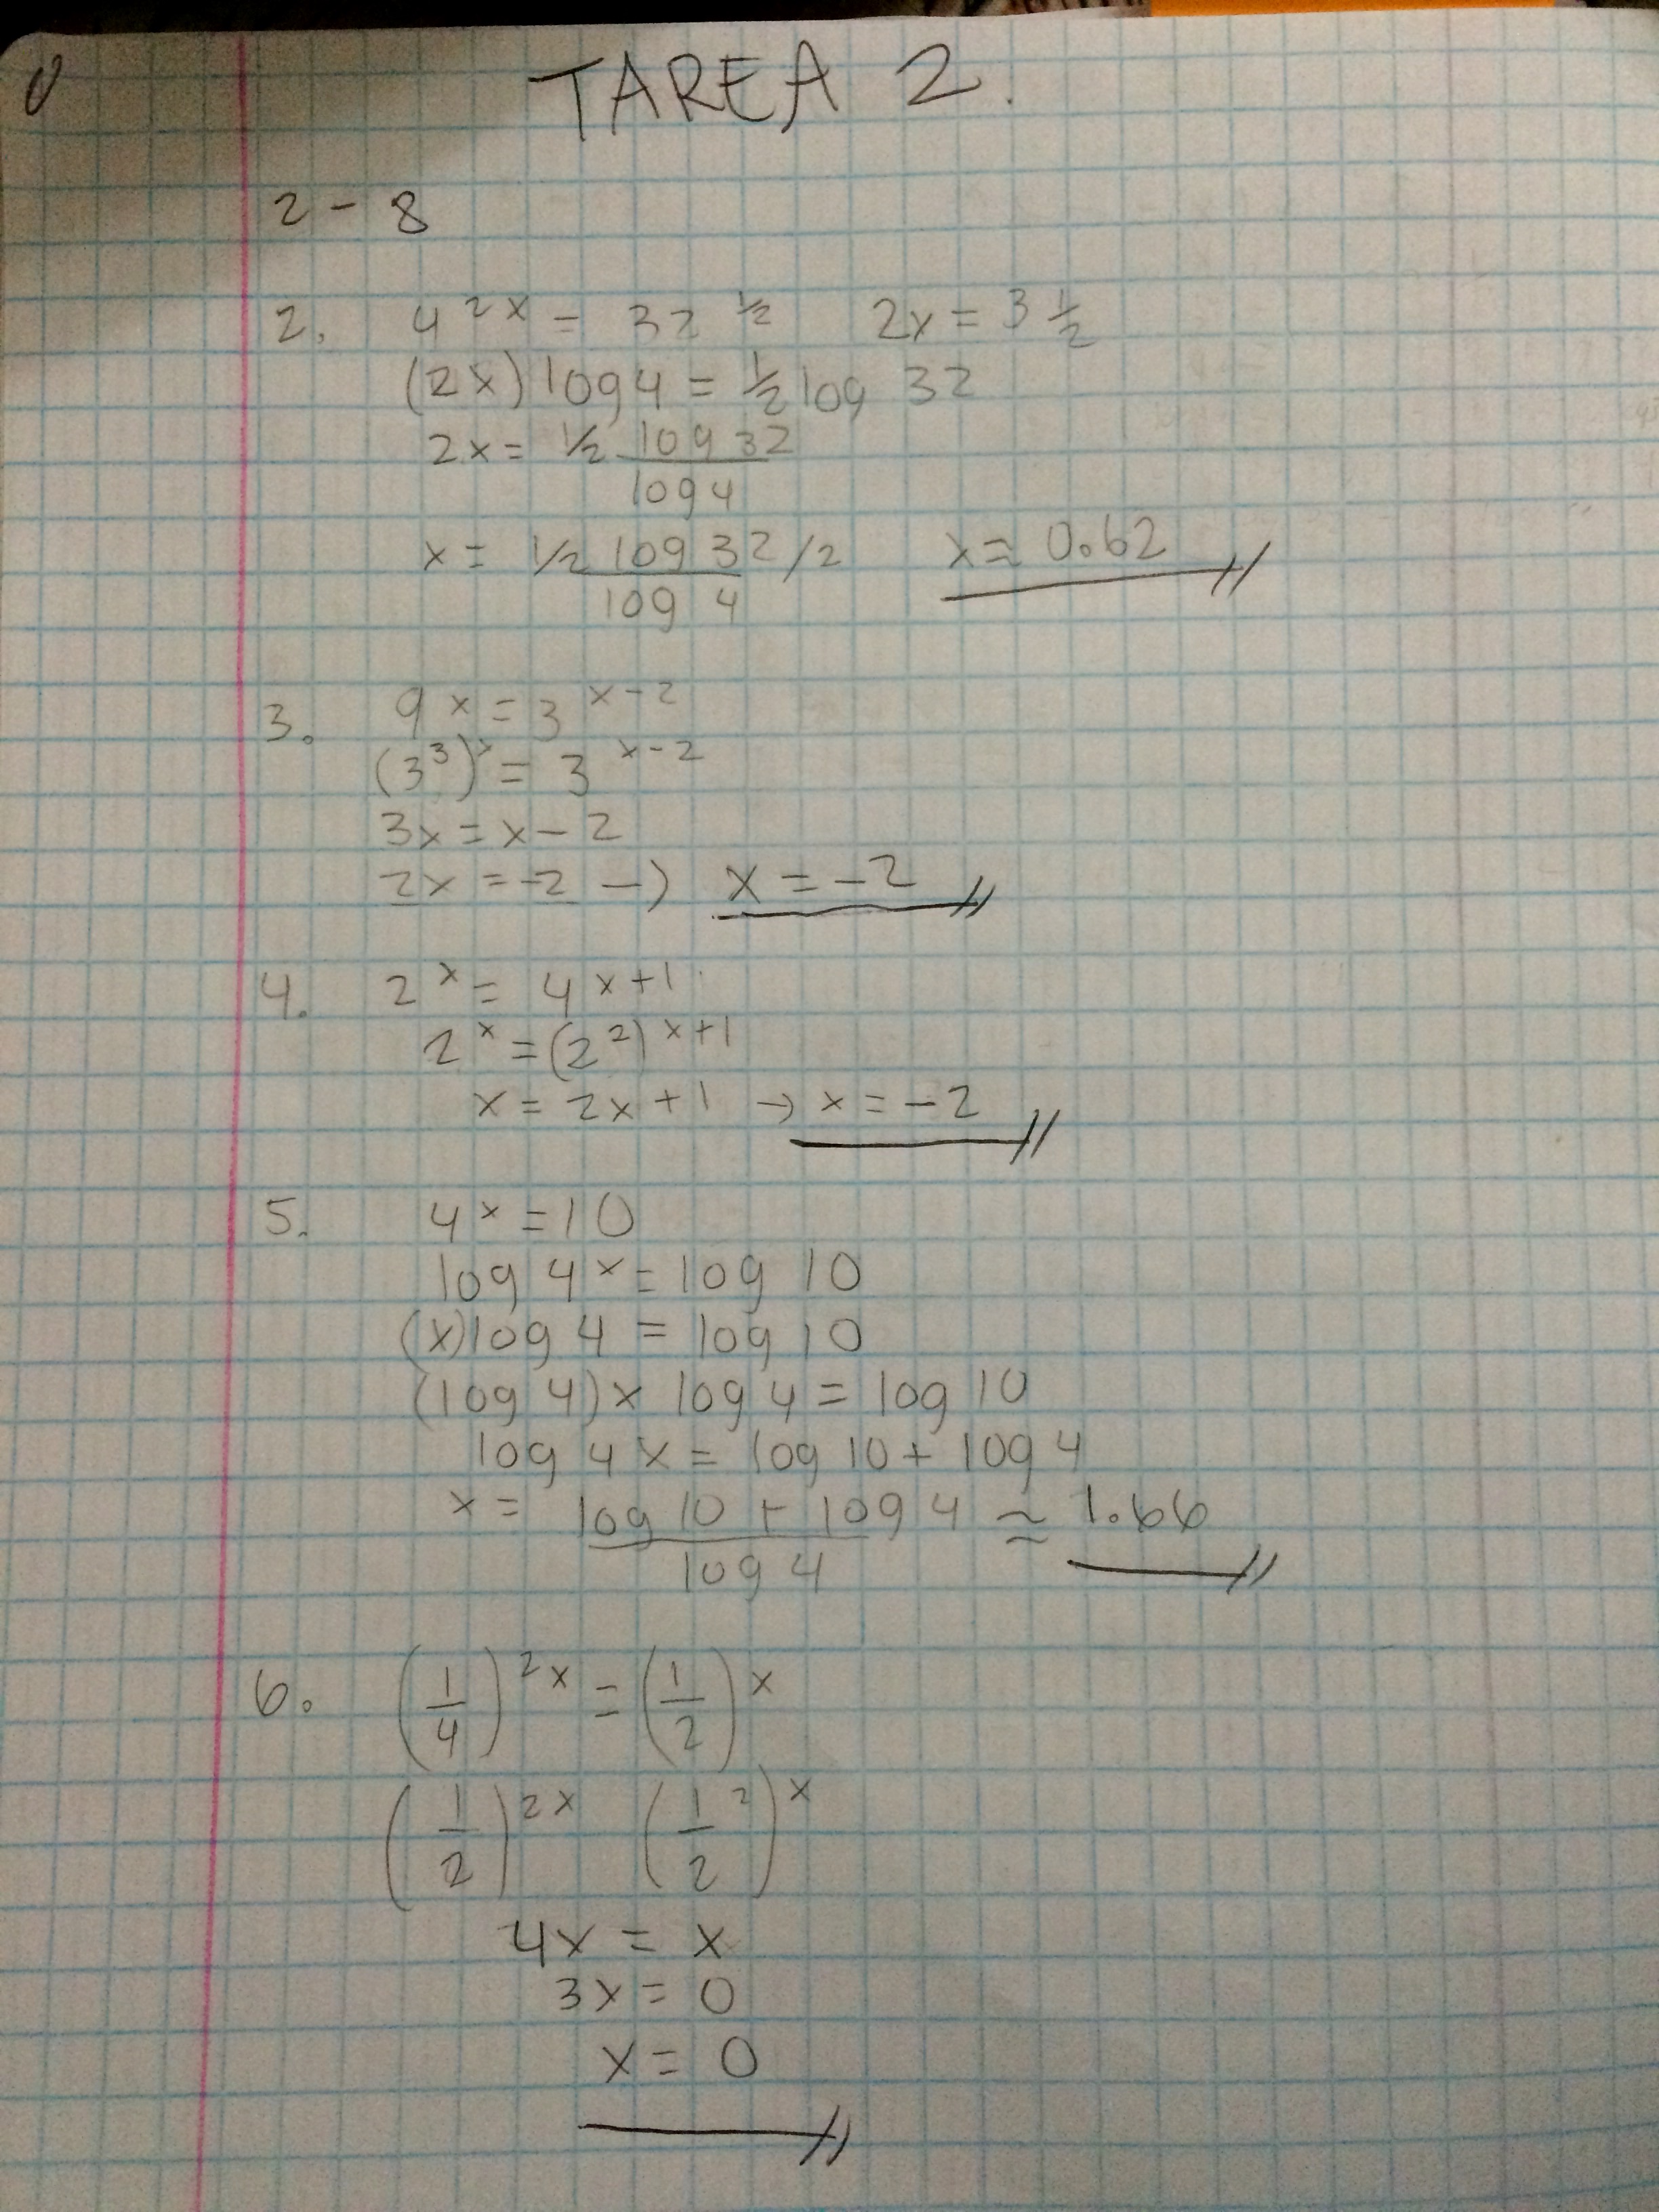 TAREA 2.
2 - 8
2. 4^{2x} = 32^{1/2} 2x = 3 1/2
(2x) log 4 = 1/2 log 32
2x = 1/2 log 32 / log 4
x = 1/2 log 32 / log 4 /2 x = 0.62
3. 9^x = 3^{x-2}
(3^3)^x = 3^{x-2}
3x = x - 2
2x = -2 → x = -2
4. 2^x = 4^{x+1}
2^x = (2^2)^{x+1}
x = 2x + 1 → x = -2
5. 4^x = 10
log 4^x = log 10
(x) log 4 = log 10
(log 4) x log 4 = log 10
log 4 x = log 10 + log 4
x = log 10 + log 4 / log 4 ≈ 1.66
6. (1/4)^{2x} = (1/2)^x
(1/2)^{2x} (1/2^2)^x
4x = x
3x = 0
x = 0